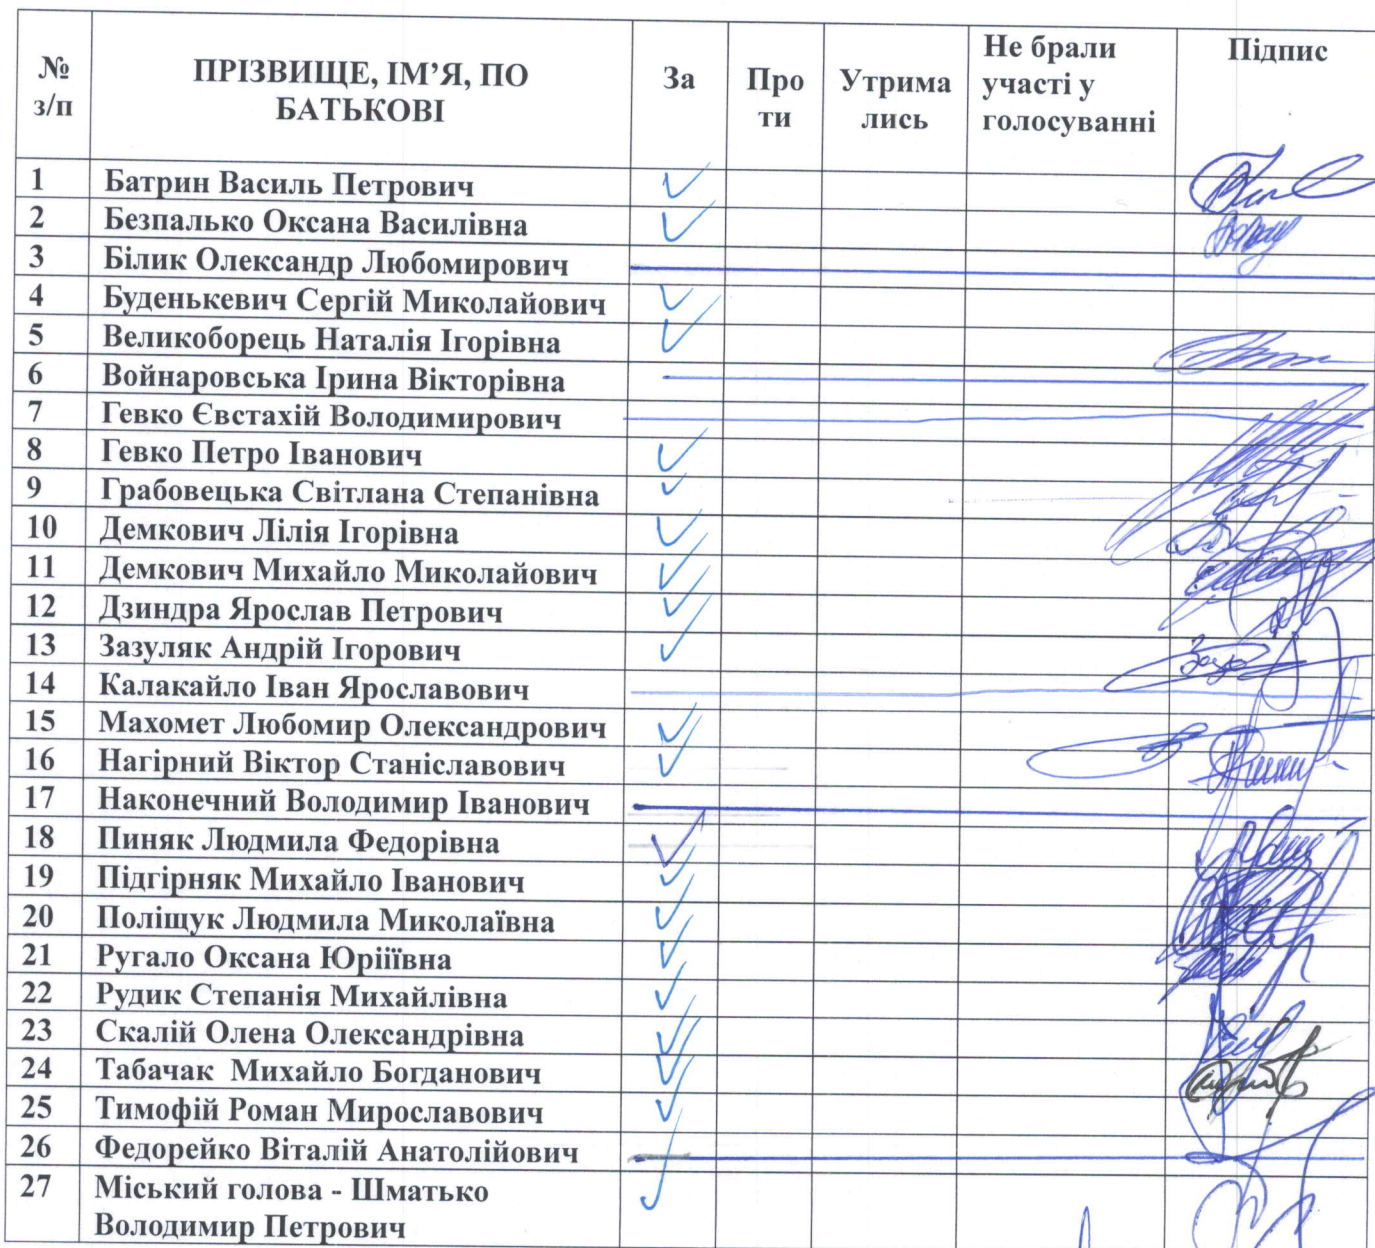 № з/п ПРІЗВИЩЕ, ІМ’Я, ПО БАТЬКОВІ За Про ти Утрима лись Не брали участі у голосуванні Підпис
1 Батрин Василь Петрович ✓
2 Безпалько Оксана Василівна ✓
3 Білик Олександр Любомирович
4 Буденькевич Сергій Миколайович ✓
5 Великоборець Наталія Ігорівна ✓
6 Войнаровська Ірина Вікторівна
7 Гевко Євстахій Володимирович
8 Гевко Петро Іванович ✓
9 Грабовецька Світлана Степанівна ✓
10 Демкович Лілія Ігорівна ✓
11 Демкович Михайло Миколайович ✓
12 Дзиндра Ярослав Петрович ✓
13 Зазуляк Андрій Ігорович ✓
14 Калакайло Іван Ярославович
15 Махомет Любомир Олександрович ✓
16 Нагірний Віктор Станіславович ✓
17 Наконечний Володимир Іванович
18 Пиняк Людмила Федорівна ✓
19 Підгірняк Михайло Іванович ✓
20 Поліщук Людмила Миколаївна ✓
21 Ругало Оксана Юріїївна ✓
22 Рудик Степанія Михайлівна ✓
23 Скалій Олена Олександрівна ✓
24 Табачак Михайло Богданович ✓
25 Тимофій Роман Мирославович ✓
26 Федорейко Віталій Анатолійович
27 Міський голова - Шматько ✓
Володимир Петрович